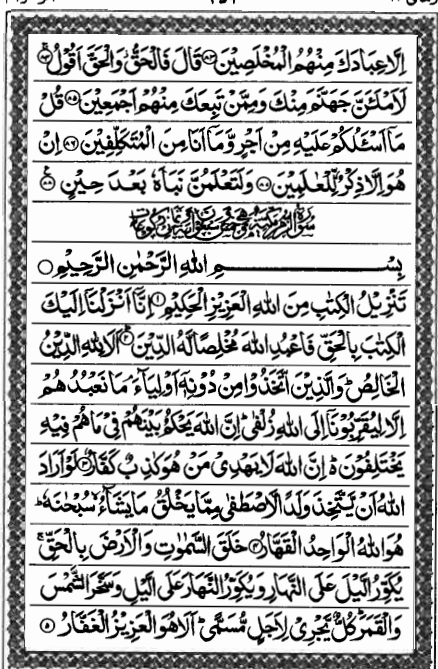 اِلَّا عِبَادَكَ مِنْهُمُ الْمُخْلَصِيْنَ ﴿۸۳﴾ قَالَ فَالْحَقُّ وَالْحَقَّ اَقُوْلُ ﴿۸۴﴾
لَاَمْلَئَنَّ جَهَنَّمَ مِنْكَ وَمِمَّنْ تَبِعَكَ مِنْهُمْ اَجْمَعِيْنَ ﴿۸۵﴾ قُلْ
مَاۤ اَسْـَٔلُكُمْ عَلَيْهِ مِنْ اَجْرٍ وَّمَاۤ اَنَا مِنَ الْمُتَكَلِّفِيْنَ ﴿۸۶﴾ اِنْ
هُوَ اِلَّا ذِكْرٌ لِّلْعٰلَمِيْنَ ﴿۸۷﴾ وَلَتَعْلَمُنَّ نَبَاَهٗ بَعْدَ حِيْنٍ ﴿۸۸﴾
بِسْمِ اللهِ الرَّحْمٰنِ الرَّحِيْمِ
تَنْزِيْلُ الْكِتٰبِ مِنَ اللهِ الْعَزِيْزِ الْحَكِيْمِ ﴿۱﴾ اِنَّاۤ اَنْزَلْنَاۤ اِلَيْكَ
الْكِتٰبَ بِالْحَقِّ فَاعْبُدِ اللهَ مُخْلِصًا لَّهُ الدِّيْنَ ﴿۲﴾ اَلَا لِلهِ الدِّيْنُ
الْخَالِصُ ؕ وَالَّذِيْنَ اتَّخَذُوْا مِنْ دُوْنِهٖۤ اَوْلِيَآءَ ۘ مَا نَعْبُدُهُمْ
اِلَّا لِيُقَرِّبُوْنَاۤ اِلَى اللهِ زُلْفٰى ؕ اِنَّ اللهَ يَحْكُمُ بَيْنَهُمْ فِيْ مَا هُمْ فِيْهِ
يَخْتَلِفُوْنَ ؕ اِنَّ اللهَ لَا يَهْدِيْ مَنْ هُوَ كٰذِبٌ كَفَّارٌ ﴿۳﴾ لَوْ اَرَادَ
اللهُ اَنْ يَّتَّخِذَ وَلَدًا لَّاصْطَفٰى مِمَّا يَخْلُقُ مَا يَشَآءُ ۙ سُبْحٰنَهٗ ؕ
هُوَ اللهُ الْوَاحِدُ الْقَهَّارُ ﴿۴﴾ خَلَقَ السَّمٰوٰتِ وَالْاَرْضَ بِالْحَقِّ ۚ
يُكَوِّرُ الَّيْلَ عَلَى النَّهَارِ وَيُكَوِّرُ النَّهَارَ عَلَى الَّيْلِ وَسَخَّرَ الشَّمْسَ
وَالْقَمَرَ ؕ كُلٌّ يَّجْرِيْ لِاَجَلٍ مُّسَمًّى ؕ اَلَا هُوَ الْعَزِيْزُ الْغَفَّارُ ﴿۵﴾